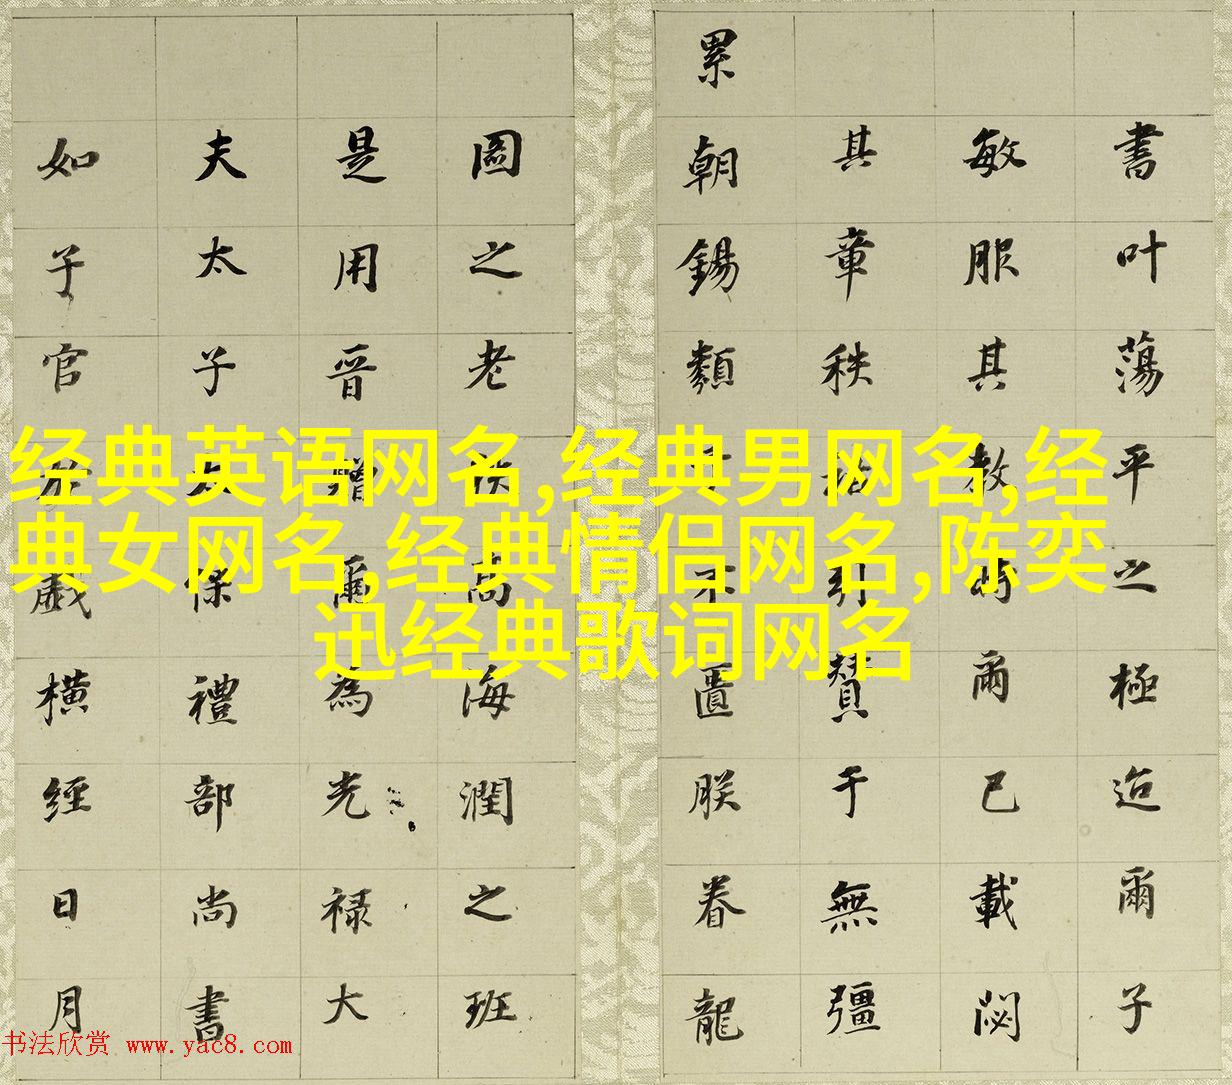 書叶蕩平之極迨爾子
敏服其教特爾已載閟
其章秩引贊于無彊
累朝錫類不匱朕眷龍
圖之老高海潤之班
是用晋贈爾為光禄大
夫太子太保禮部尚書
如子官於戲横經日月
经典英语网名,经典男网名,经
典女网名,经典情侣网名,陈奕
迅经典歌词网名
书法欣赏 www.yac8.com